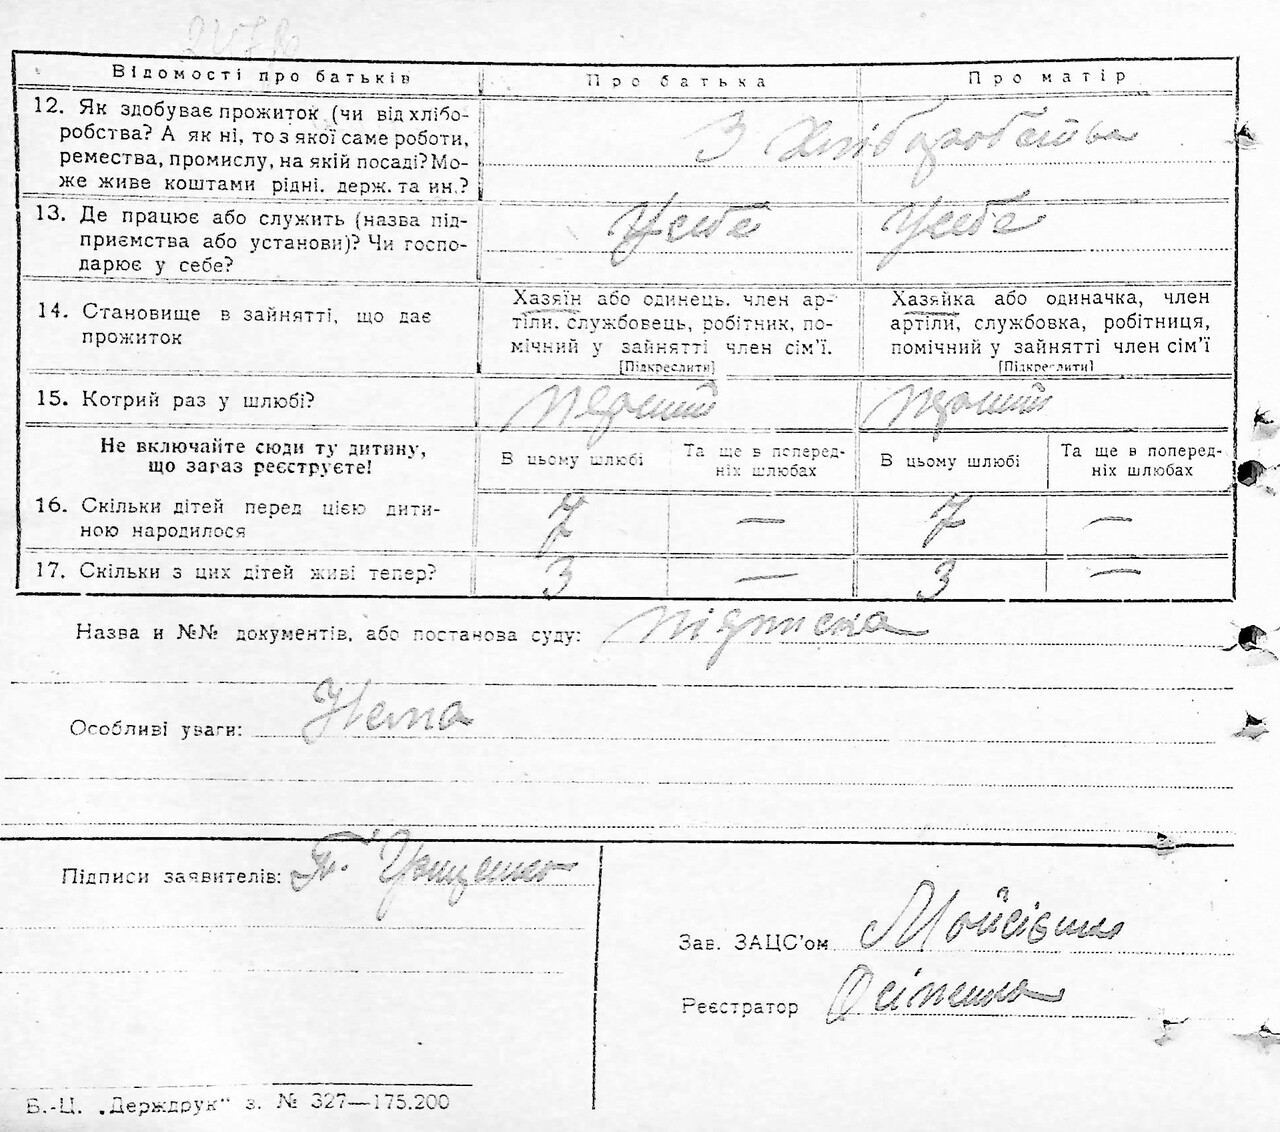 Відомості про батьків Про батька Про матір
12. Як здобуває прожиток (чи від хлібо-
робства? А як ні, то з якої саме роботи,
ремества, промислу, на якій посаді? Мо-
же живе коштами рідні. держ. та ин.?
З хліборобства
13. Де працює або служить (назва під-
приємства або установи)? Чи госпо-
дарює у себе?
У себе У себе
14. Становище в зайнятті, що дає
прожиток
Хазяїн або одинець. член ар-
тіли. службовець, робітник, по-
мічний у зайнятті член сім'ї.
[Підкреслити]
Хазяйка або одиначка, член
артіли, службовка, робітниця,
помічний у зайнятті член сім'ї
[Підкреслити]
15. Котрий раз у шлюбі? перший перший
Не включайте сюди ту дитину,
що загаз реєструєте!
В цьому шлюбі
Та ще в поперед-
ніх шлюбах
В цьому шлюбі
Та ще в поперед-
ніх шлюбах
16. Скільки дітей перед цією дити-
ною народилося
7 — 7 —
17. Скільки з цих дітей живі тепер? 3 — 3 —
Назва и №№ документів, або постанова суду: підписка
Особливі уваги: Нема
Підписи заявителів:
Зав. ЗАЦС'ом
Реєстратор
Б.-Ц. „Держдрук" з. № 327—175.200